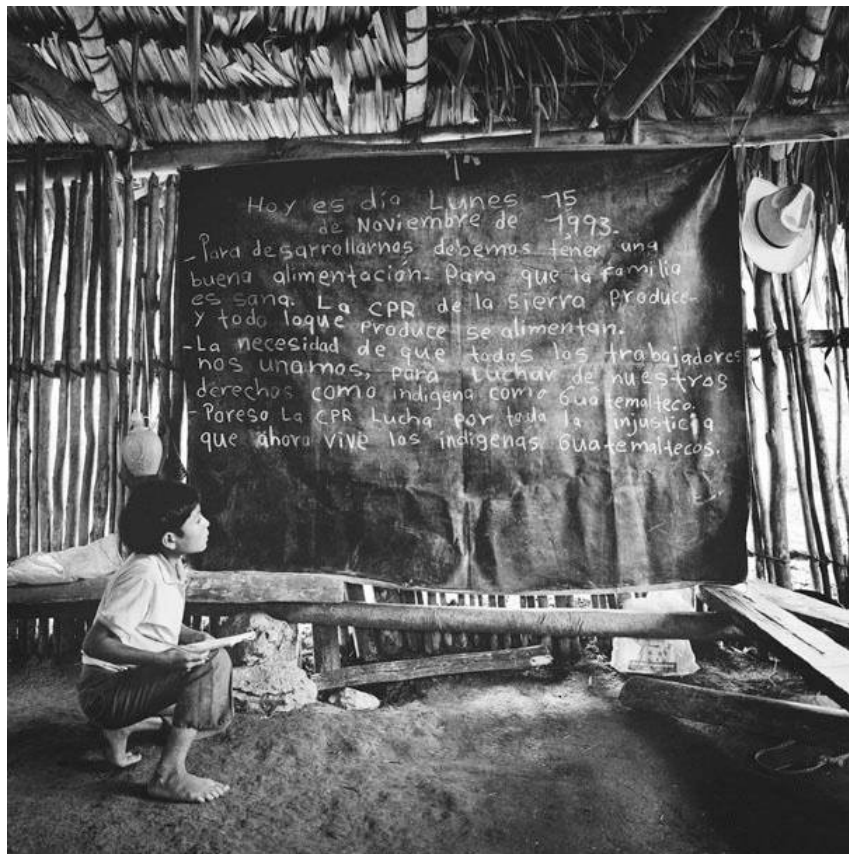 Hoy es día Lunes 15
de Noviembre de 1993.
- Para desarrollarnos debemos tener una
buena alimentación. Para que la familia
es sana. La CPR de la Sierra Produce-
y todo loque produce se alimentan.
- La necesidad de que todos los trabajadores
nos unamos, para Luchar de nuestros
derechos como indigena como Guatemalteco.
- Poreso La CPR Lucha por toda la injusticia
que ahora vive los indigenas Guatemaltecos.